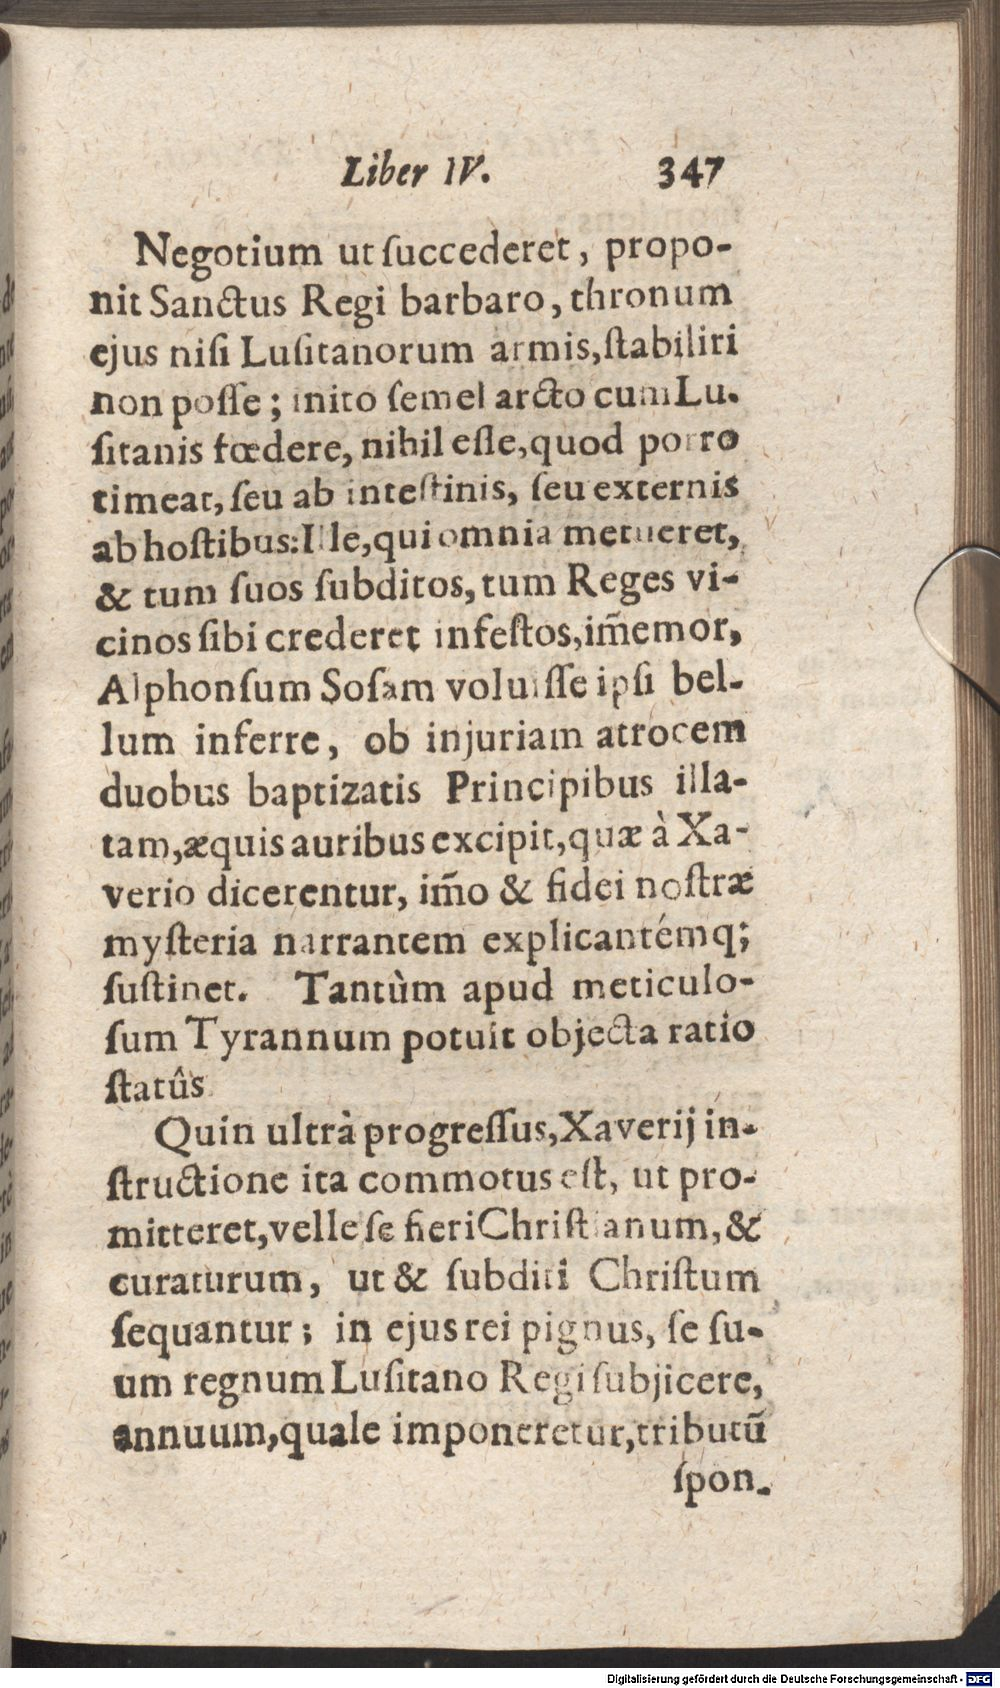 Liber IV. 347
Negotium ut ſuccederet, propo-
nit Sanctus Regi barbaro, thronum
ejus niſi Luſitanorum armis, ſtabiliri
non poſſe; inito ſemel arcto cum Lu-
ſitanis fœdere, nihil eſſe, quod porro
timeat, ſeu ab inteſtinis, ſeu externis
ab hoſtibus: Ille, qui omnia metueret,
& tum ſuos ſubditos, tum Reges vi-
cinos ſibi crederet infeſtos, im̃emor,
Alphonſum Soſam voluiſſe ipſi bel-
lum inferre, ob injuriam atrocem
duobus baptizatis Principibus illa-
tam, æquis auribus excipit, quæ à Xa-
verio dicerentur, im̃o & fidei noſtræ
myſteria narrantem explicantémq;
ſuſtinet. Tantùm apud meticulo-
ſum Tyrannum potuit objecta ratio
ſtatûs
Quin ultrà progreſſus, Xaverij in-
ſtructione ita commotus eſt, ut pro-
mitteret, velle ſe fieri Chriſtianum, &
curaturum, ut & ſubditi Chriſtum
ſequantur; in ejus rei pignus, ſe ſu-
um regnum Luſitano Regi ſubjicere,
annuum, quale imponeretur, tributũ
ſpon-
Digitalisierung gefördert durch die Deutsche Forschungsgemeinschaft - DFG